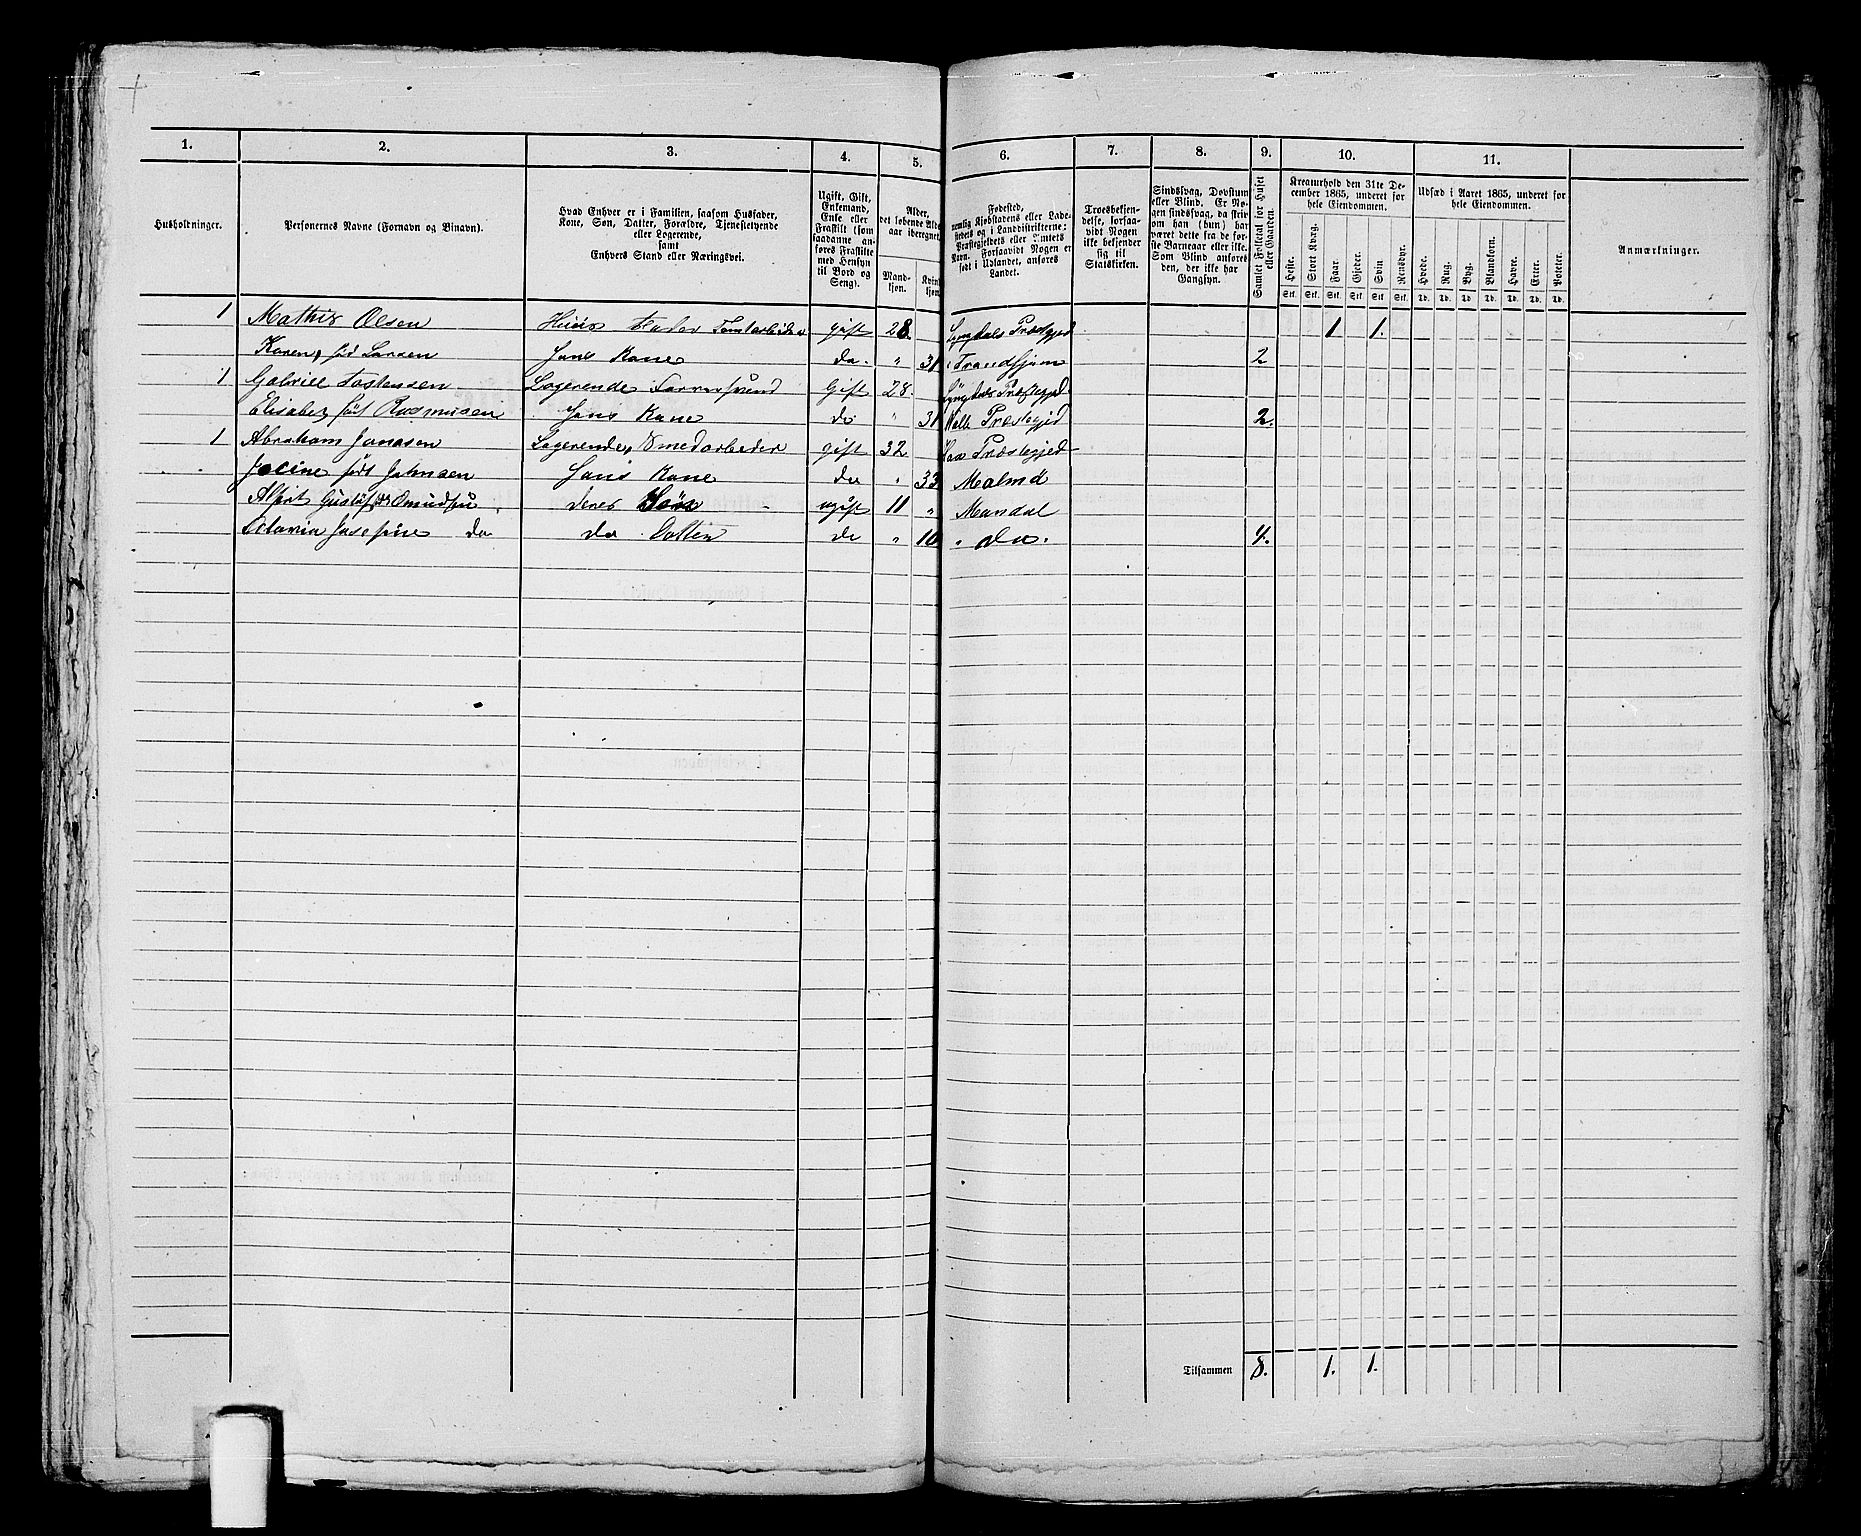 1. 2. 3. 4. 5. 6. 7. 8. 9. 10. 11.
Husholdninger.
Personernes Navne (Fornavn og Binavn).
Hvad Enhver er i Familien, saasom Husfader,
Kone, Søn, Datter, Forældre, Tjenestetyende
eller Logerende,
samt
Enhvers Stand eller Næringsvei.
Ugift, Gift,
Enkemand,
Enke eller
Fraskilt (som
saadanne an-
føres Fraskilte
med Hensyn
til Bord og
Seng).
Alder,
det løbende Alders-
aar iberegnet.
Mand-
kjøn.
Kvin
kjøn.
Fødested,
nemlig Kjøbstadens eller Lade-
stedets og i Landdistrikterne:
Præstegjeldets eller Amtets
Navn. Forsaavidt Nogen er
født i Udlandet, anføres
Landet.
Troesbekjen-
delse, forsaa-
vidt Nogen
ikke bekjender
sig til
Statskirken.
Sindssvag, Døvstum
eller Blind. Er No-
gen sindssvag, da skriv
om han (hun) har
været dette fra de før-
ste Barneaar eller ikke.
Som Blind anføres
den, der ikke har
Gangsyn.
Samlet Folketal for Huset
eller Gaarden.
Kreaturhold den 31te De-
cember 1865, underet for
hele Eiendommen.
Heste. Stort Kvæg. Faar. Gjeder. Svin. Rensdyr.
Stk. Stk. Stk. Stk. Stk. Stk.
Udsæd i Aaret 1865, underet for
hele Eiendommen.
Hvede. Rug. Byg. Blandkorn. Havre. Erter. Poteter.
Td. Td. Td. Td. Td. Td. Td.
Anmærkninger.
1 Mathis Olsen Huus Fader Tomtarbeider gift 28. Lyngdals Præstegjed 1 1.
Karen, fød Larsen Hans Kone do. " 31 Trondhjem 2
1 Gabriel Tostensen Logerende Gift 28. Lyngdals Præstegjed
Elisabet født Rasmusen Hans Kone do 31 Halse Præstegjed 2.
1 Abraham Jonasen Logerende, Smedarbeder gift 32 Præstegjed
født Johnsen Hans Kone do " 33 Malmø
Gustaf Omudsen deres Søn ugift 11 " Mandal
Josefine do do Datter do " 10 " do. 4.
Tilsammen 8. 1. 1.